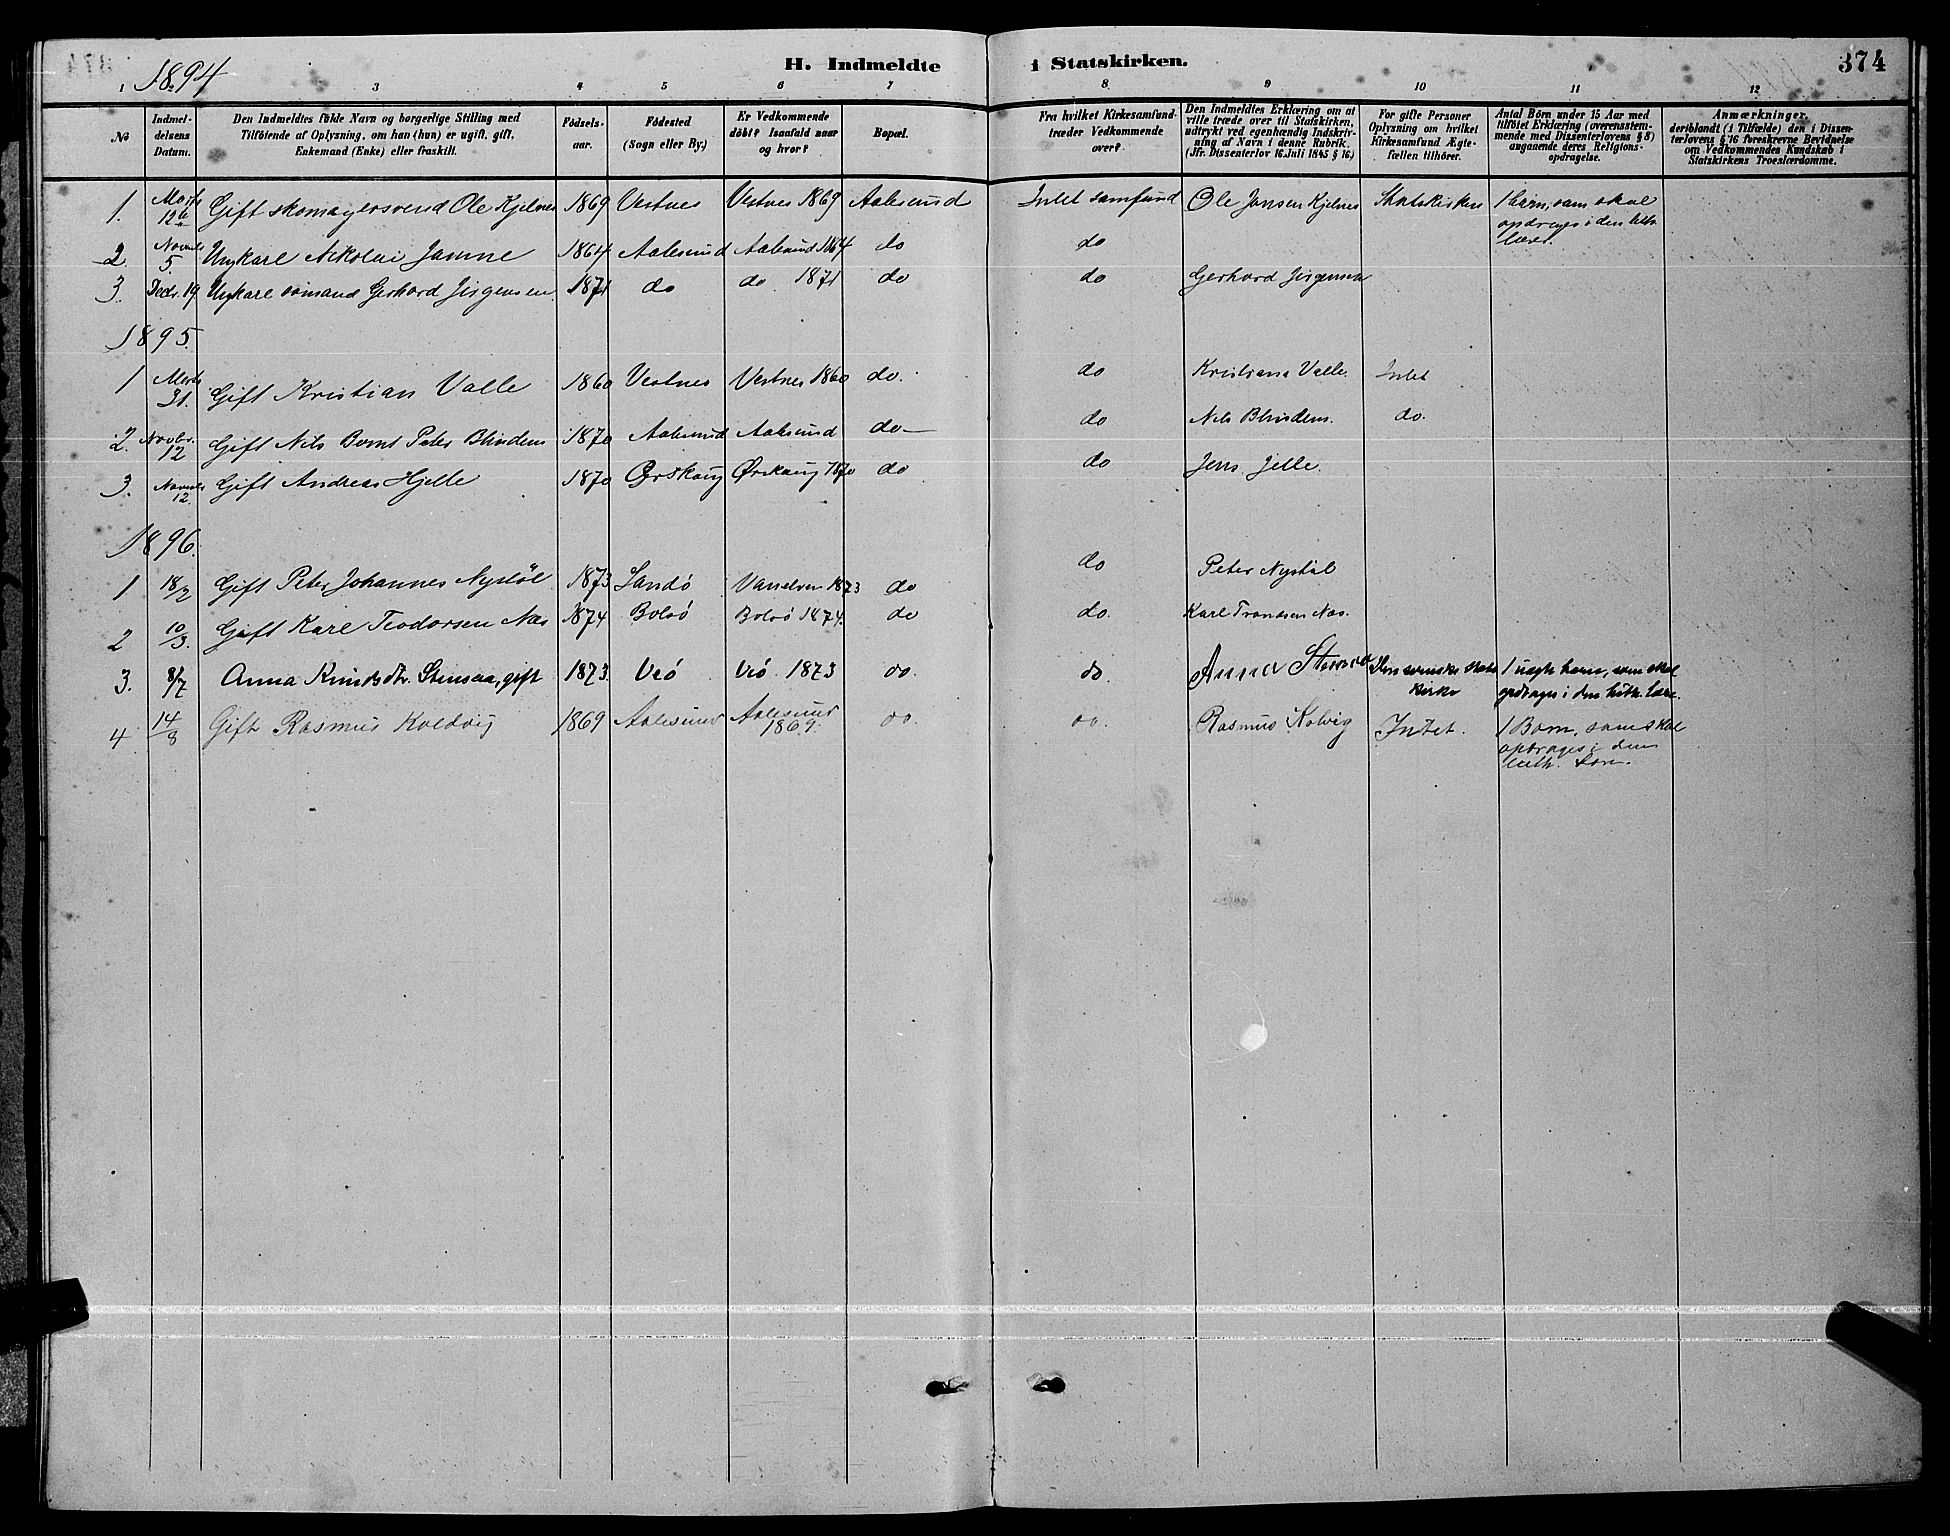 H. Indmeldte i Statskirken. 374
1894
1 3 4 5 6 7 8 9 10 11 12
No
Indmel-
delsens
Datum.
Den Indmeldtes fulde Navn og borgerlige Stilling med
Tilföiende af Oplysning, om han (hun) er ugift, gift,
Enkemand (Enke) eller fraskilt.
Födsels-
aar.
Födested
(Sogn eller By.)
Er Vedkommende
döbt? Isaafald naar
og hvor?
Bopæl.
Fra hvilket Kirkesamfund
træder Vedkommende
over?
Den Indmeldtes Erklæring om at
ville træde over til Statskirken,
udtrykt ved egenhændig Indskriv-
ning af Navn i denne Rubrik.
(Jfr. Dissenterlov 16. Juli 1845 § 16.)
For gifte Personer
Oplysning om hvilket
Kirkesamfund Ægte-
fællen tilhörer.
Antal Börn under 15 Aar med
tilföiet Erklæring (overensstem-
mende med Dissenterlovens § 8)
angaaende deres Religions-
opdragelse.
Anmærkninger,
deriblandt (i Tilfælde) den i Dissen-
terlovens § 16 foreskrevne Bevidnelse
om Vedkommendes Kundskab i
Statskirkens Troeslærdomme.
1. 12 Gift skomagersvend Ole Kjelnes 1869 Vestnes Vestnes 1869 Aalesund Intet samfund Ole Jansen Kjelnes Statskirken 1 börn, som skal
opdrages i den luth.
lære.
2. Novbr 5. Ungkarl Nikolai Jamne 1864 Aalesund Aalesund 1864 do do
3. Decbr. 19 Ungkarl sömand Gerhard Jörgensen 1871 do do 1871 do do Gerhard Jörgensen
1895.
1 Marts 31. Gift Kristian Valle 1860 Vestnes Vestnes 1860 do. do Kristian Valle. Intet
2. Novbr. 12 Gift Nils Bernt Peter Blindem 1870 Aalesund Aalesund do do Nils Blindem. do.
3. Novbr 12. Gift Andreas Hjelle 1870 Ørskoug Ørskoug 1870 do do Jens Jelle.
1896.
1 18/2 Gift Peter Johannes Nystöl 1873 Sandö Vanelven 1873 do do Peter Nystöl
2 10/3. Gift Karl Teodorsen Næs 1874 Bolsö Bolsö 1874. do do. Karl Næs.
3. 8/7 Anna Knudsdtr. Stensaa, gift 1873. Veö Veö 1873 do do. Anna Den svenske stats
kirke 1 uægte barn, som skal
opdrages i den luth. Lære.
4. 14/8 Gift Rasmus Koldvig 1869 Aalesund Aalesund
1869. do. do. Rasmus Kolvig Intet. 1 Barn, som skal
opdrages i den
luth. Lære.